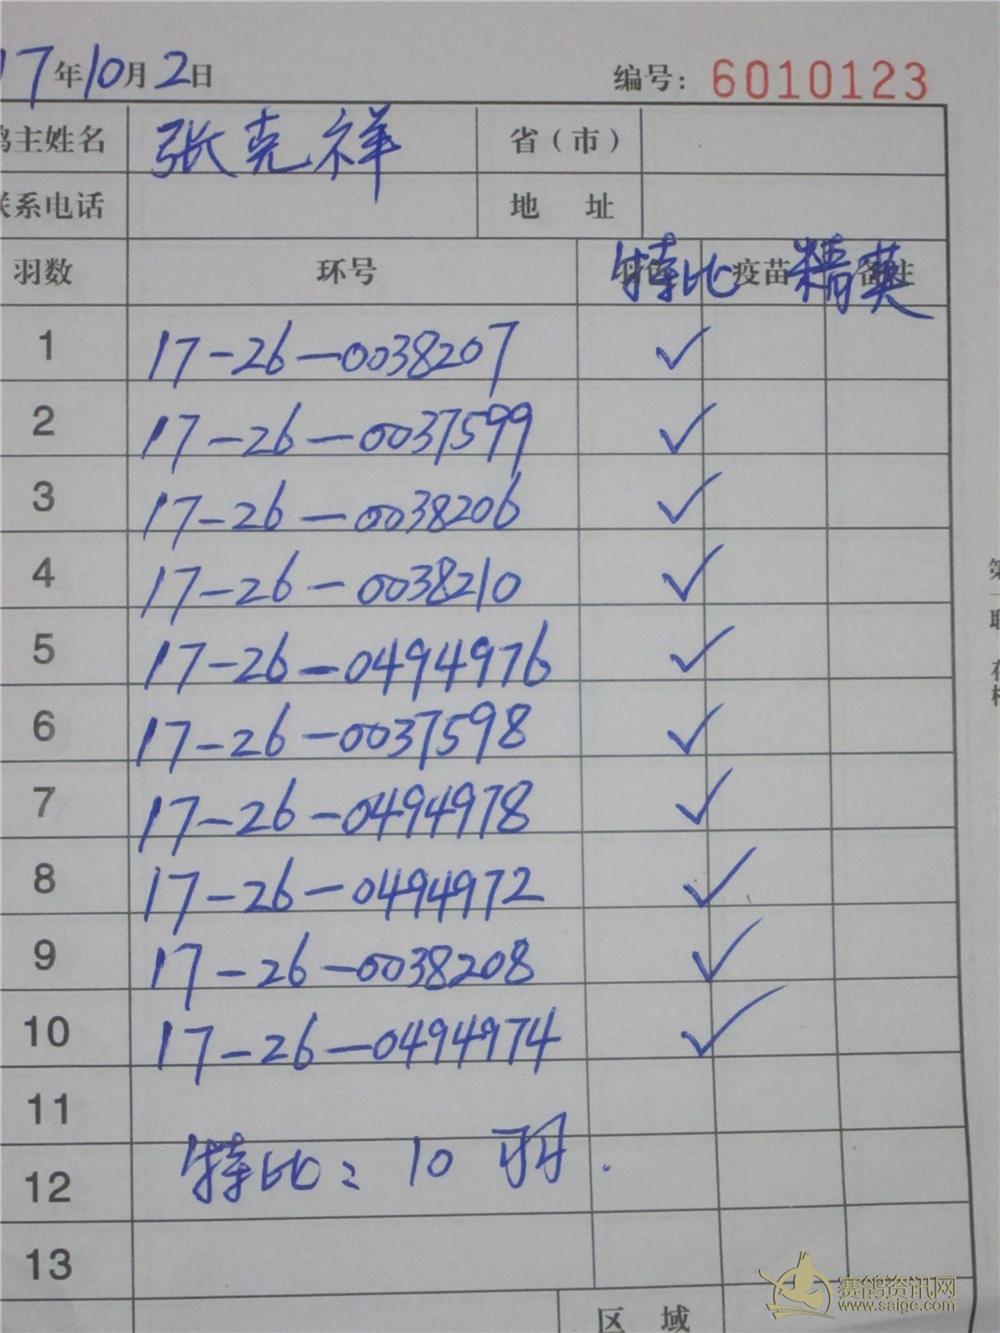 17年10月2日 编号：6010123
鸽主姓名 张克祥 省（市）
联系电话 地 址
羽数 环号 特比 疫苗 精英 备注
1 17-26-0038207 ✓
2 17-26-0037599 ✓
3 17-26-0038206 ✓
4 17-26-0038210 ✓
5 17-26-0494976 ✓
6 17-26-0037598 ✓
7 17-26-0494978 ✓
8 17-26-0494972 ✓
9 17-26-0038208 ✓
10 17-26-0494974 ✓
11
12 特比：10羽.
13
区 域
第一联
赛鸽资讯网
www.saigc.com